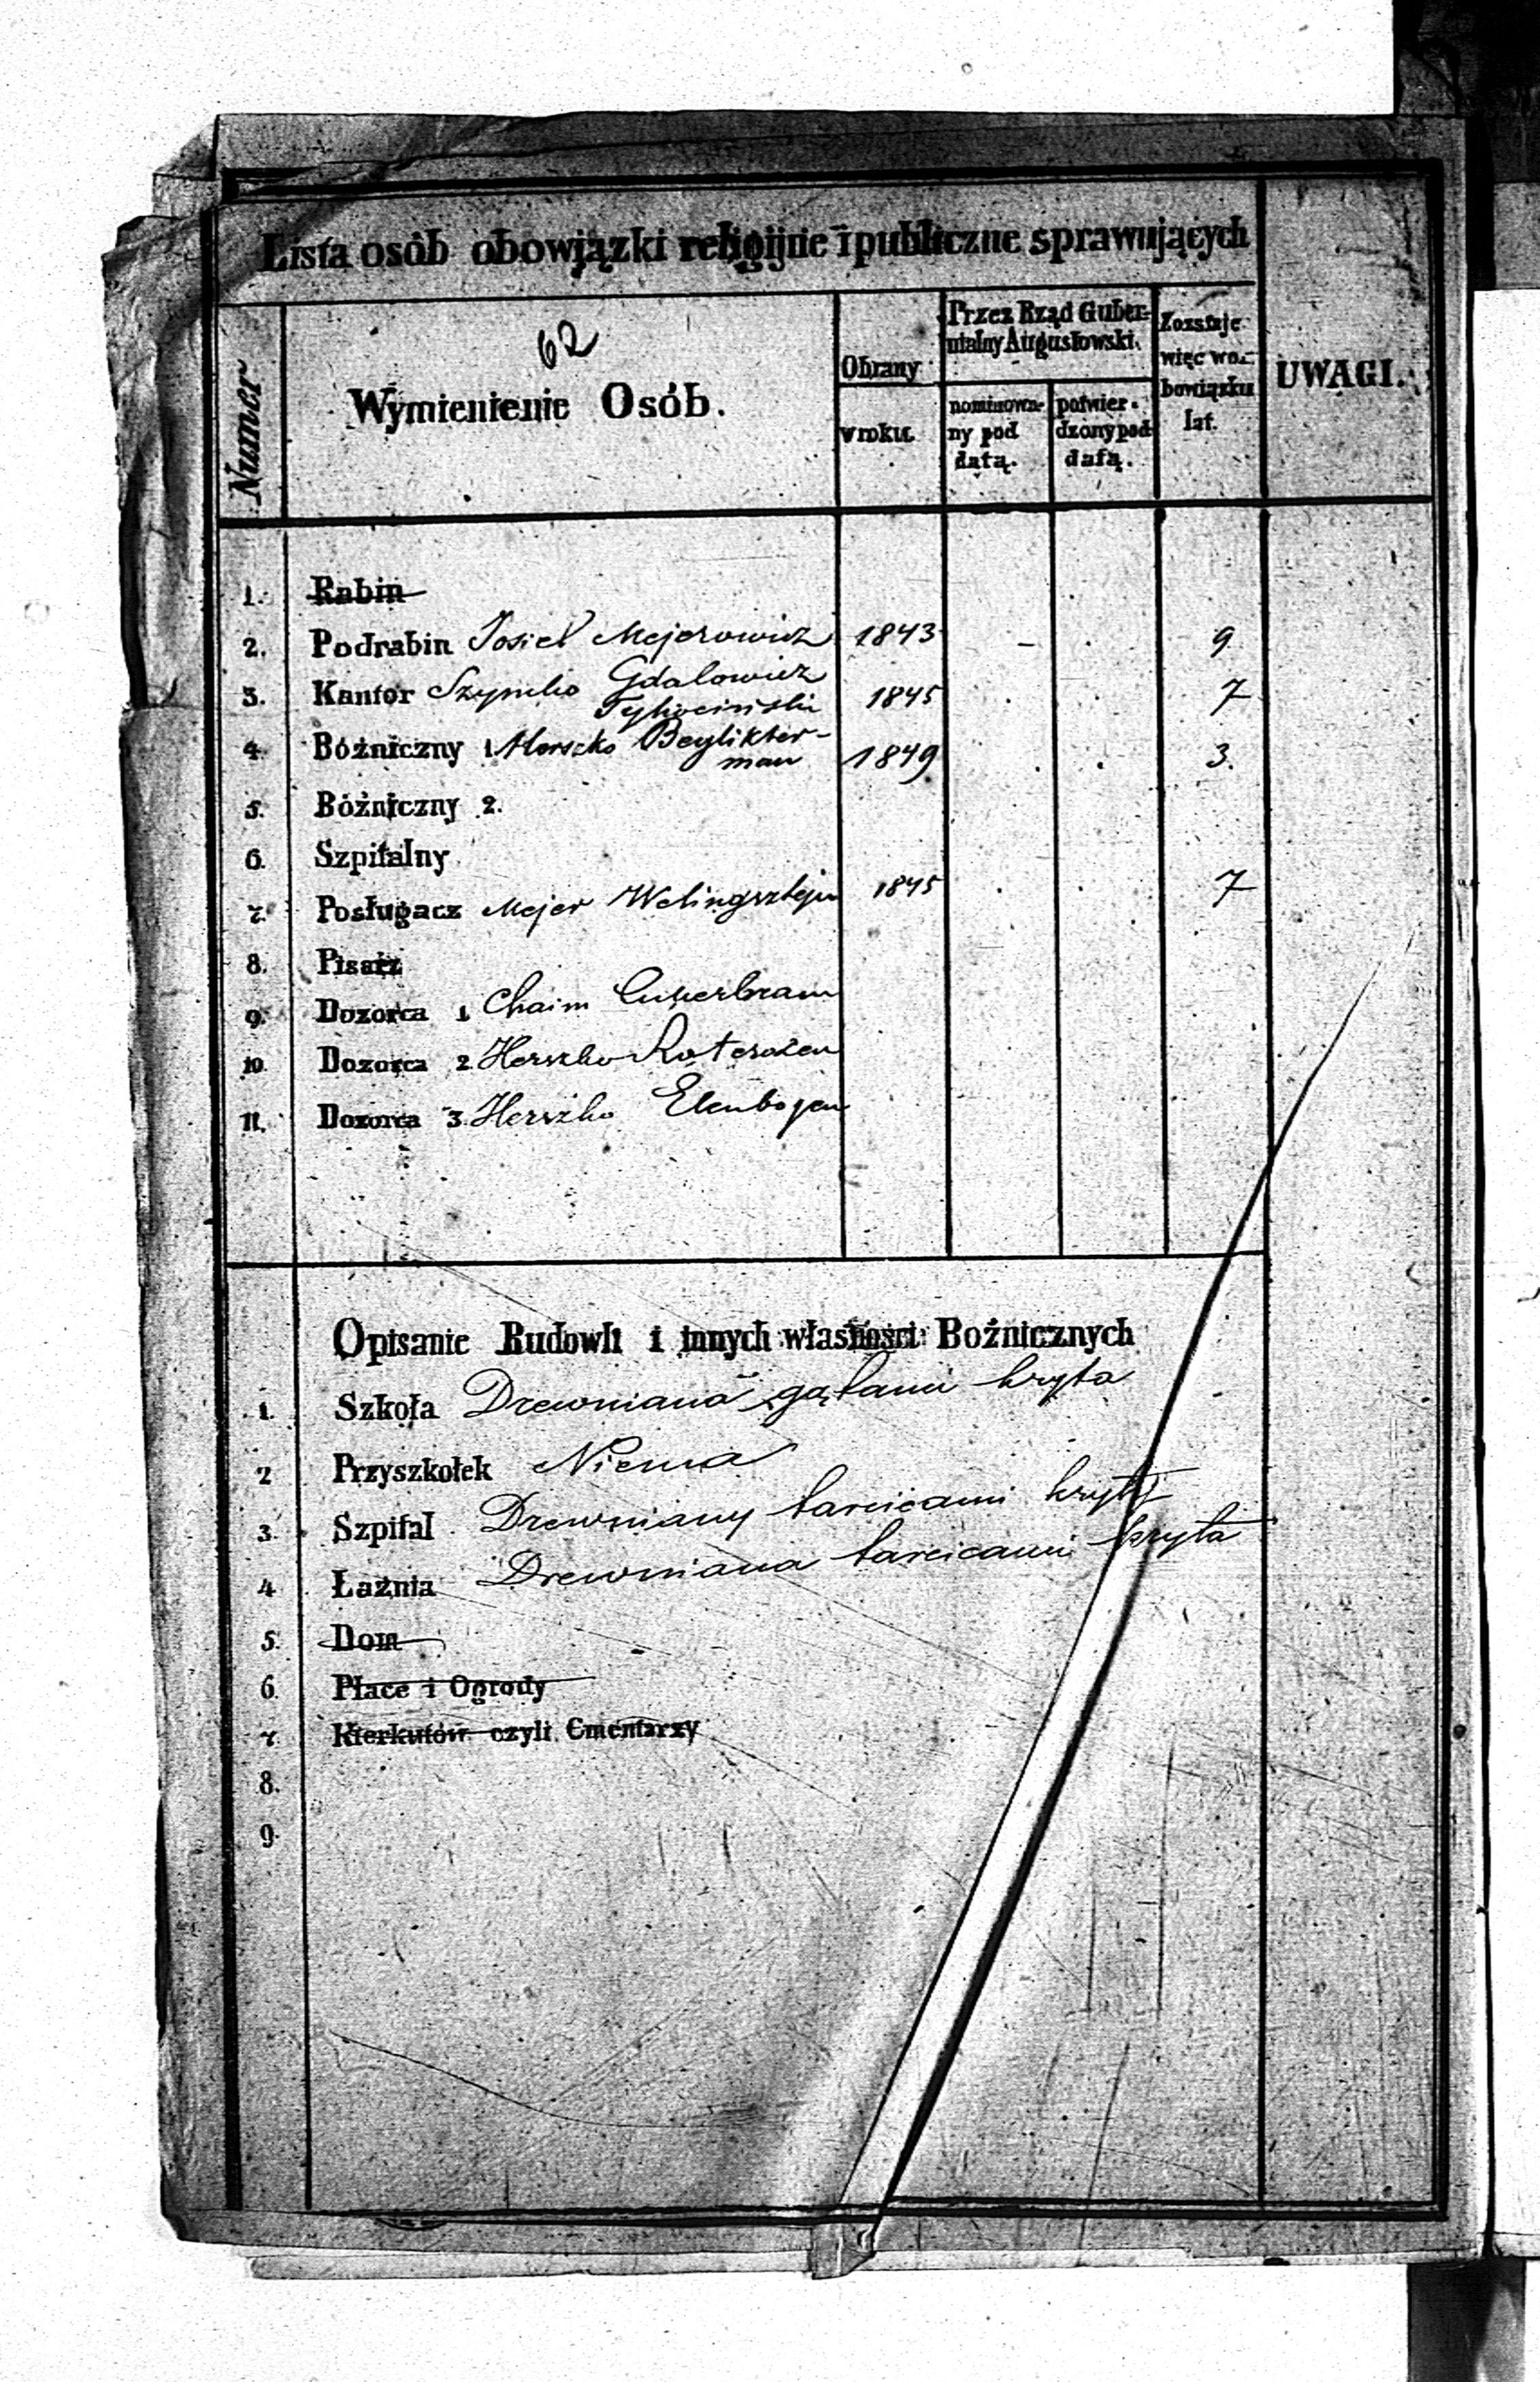 Lista osób obowiązki religijne i publiczne sprawujących
62
Numer
Wymienienie Osób.
Obrany
w roku.
Przez Rząd Guber-
nialny Augustowski.
nominowa-
ny pod
datą.
potwier-
dzony pod
datą.
Zostaje
więc w o-
bowiązku
lat.
UWAGI.
1. Rabin
2. Podrabin Josiel Mejerowicz 1843 - . 9
3. Kantor Szymcho Gdalowicz
Tykociński 1845 . . 7
4. Bóżniczny 1. Herszko Beylikter-
man 1849 . . 3.
5. Bóżniczny 2.
6. Szpitalny
7. Posługacz Mejer Welingsztejn 1845 . . 7
8. Pisarz
9. Dozorca 1. Chaim Cukerbram
10. Dozorca 2. Herszko Roterozen
11. Dozorca 3. Herszko Elenbogen
Opisanie Budowli i innych własności Bożnicznych
1. Szkoła Drewniana gątami kryta
2 Przyszkołek Niema
3. Szpital Drewniany tarcicami kryty
4 Łaźnia Drewniana tarcicami kryta
5. Dom
6. Place i Ogrody
7. Kierkutów czyli Cmentarzy
8.
9.